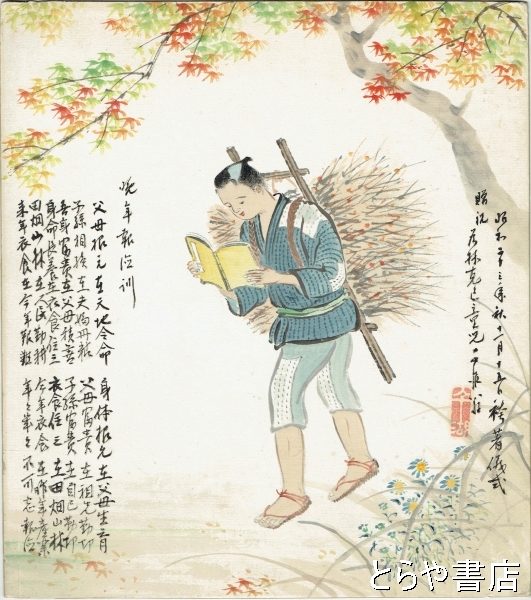 昭和 三年秋十一月十五日袴著儀式
贈祝 林克己
晩年報徳訓
父母根元在天地令命
身体根元在父母生育
子孫相続在夫婦丹精
父母富貴在祖先勤功
吾身富貴在父母積善
子孫富貴在自己勤功
身命長養在衣食住三
衣食住三在田畑山林
田畑山林在人民勤耕
今年衣食在昨年産業
来年衣食在今年艱難
年々歳々不可忘報徳
とらや書店